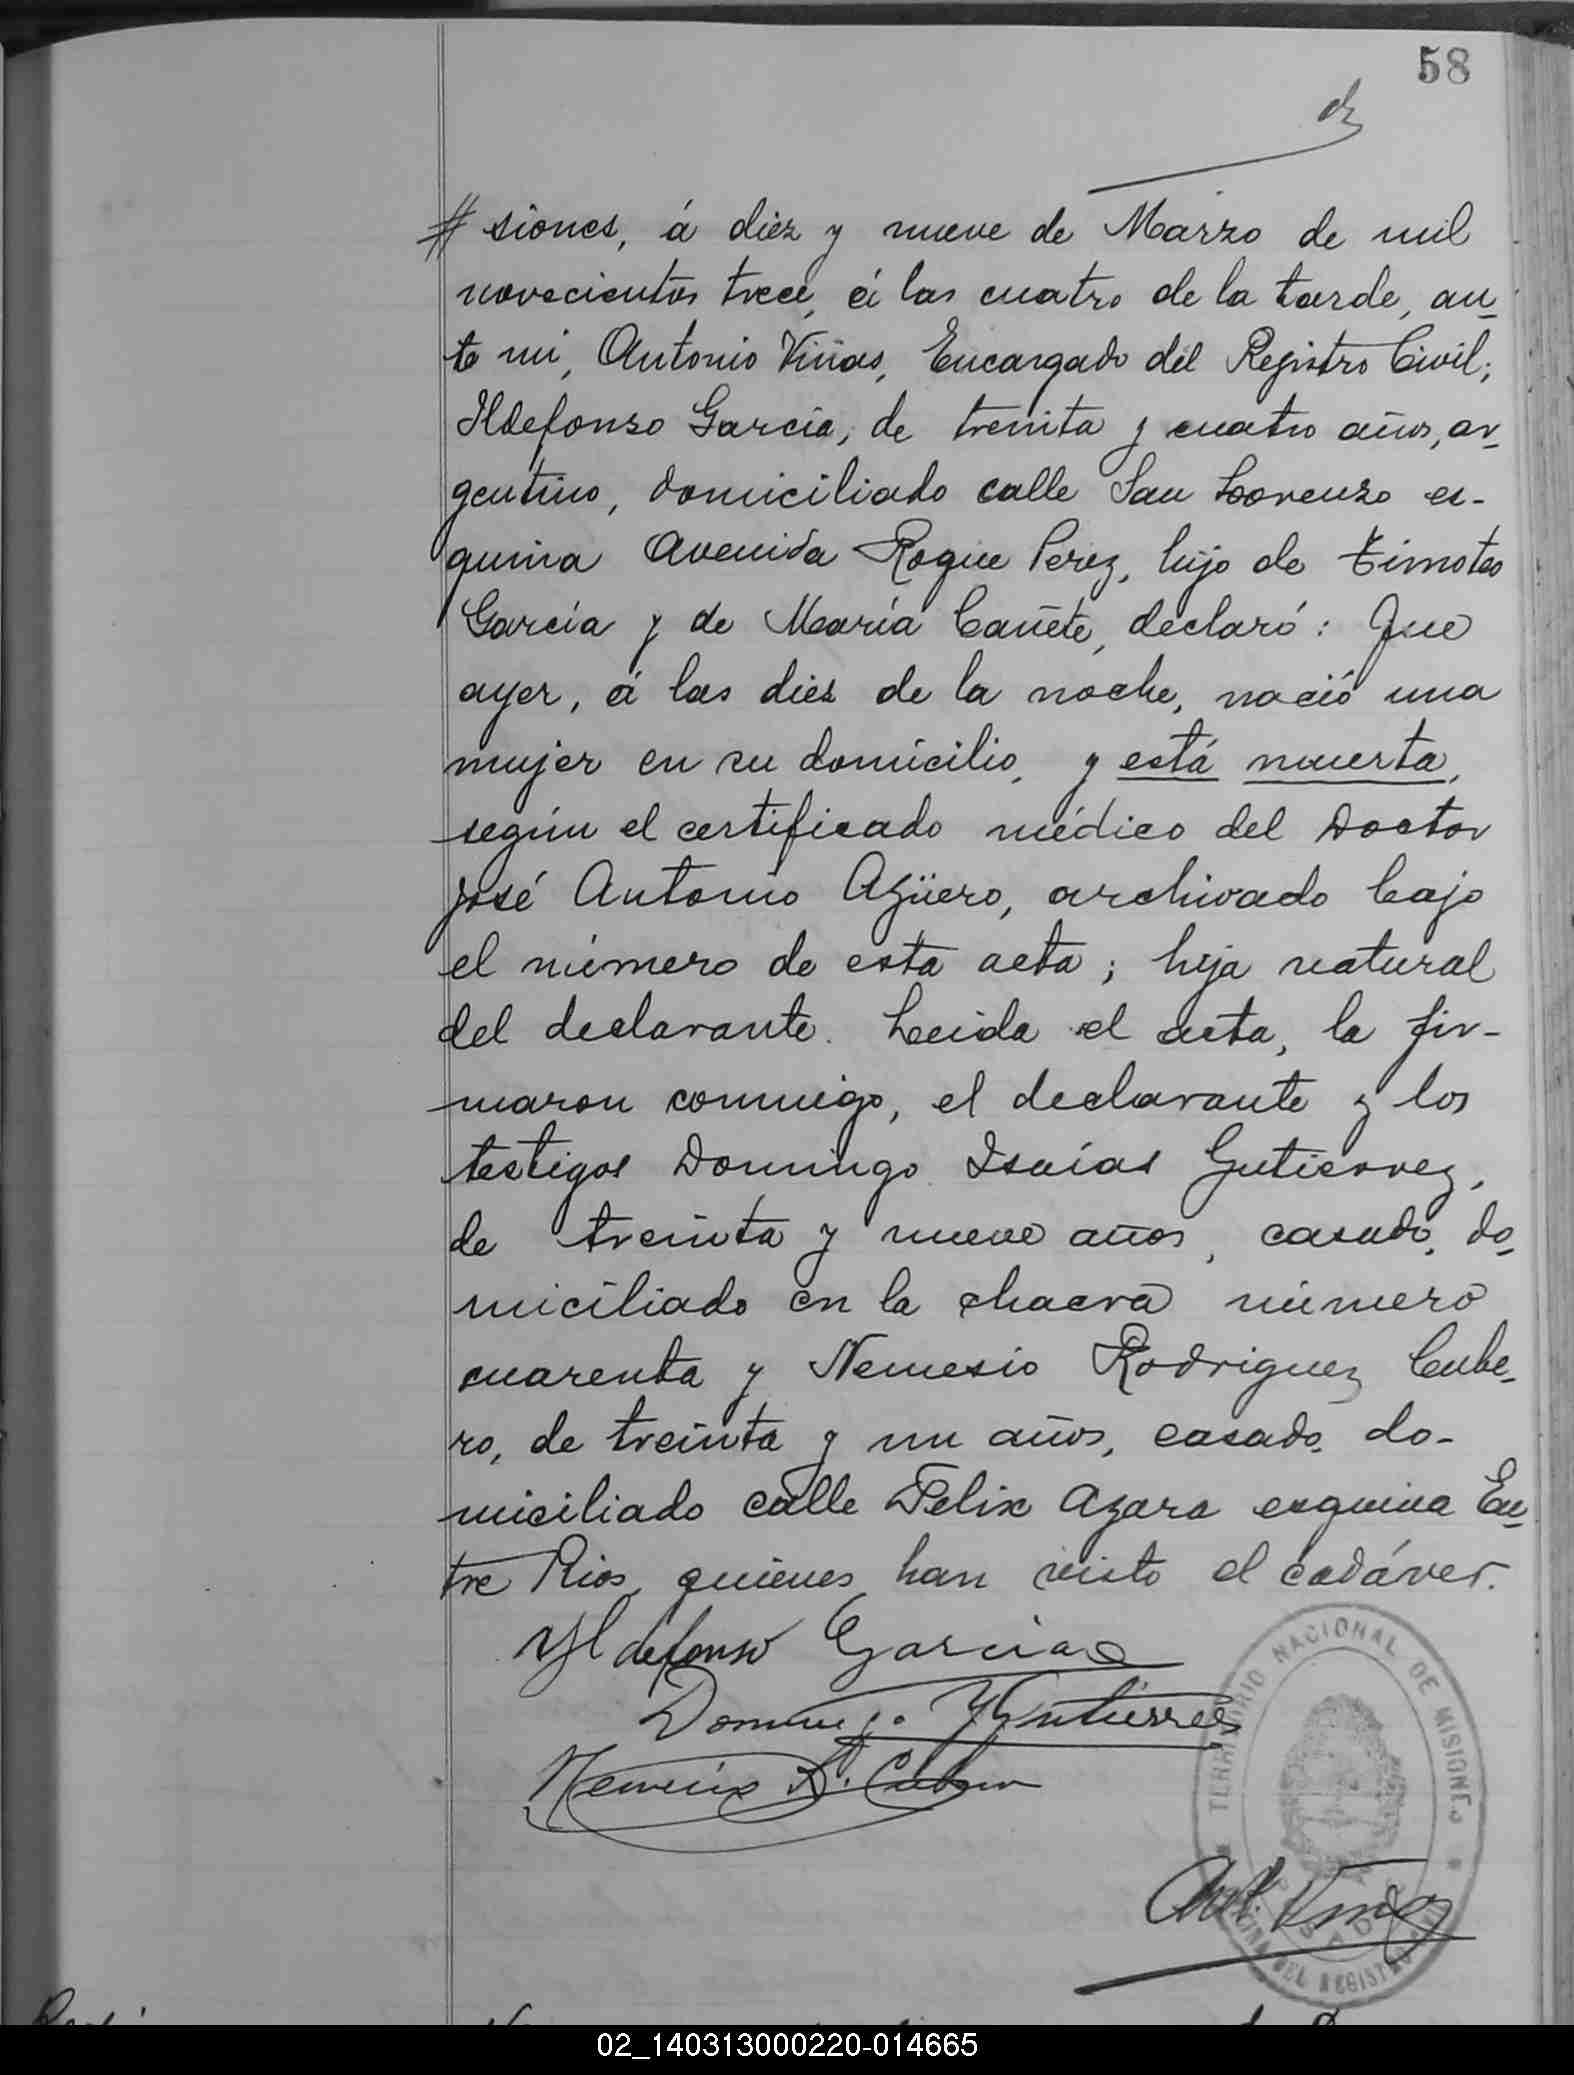 58
# siones, á diez y nueve de Marzo de mil
novecientos trece, á las cuatro de la tarde, an-
te mi, Antonio Viñas, Encargado del Registro Civil;
Ildefonso García, de treinta y cuatro años, ar-
gentino, domiciliado calle San Lorenzo es-
quina Avenida Roque Perez, hijo de Timoteo
García y de María Cañete, declaró: Que
ayer, á las diez de la noche, nació una
mujer en su domicilio, y está muerta,
según el certificado médico del Doctor
José Antonio Agüero, archivado bajo
el número de esta acta; hija natural
del declarante. Leida el acta, la fir-
maron conmigo, el declarante y los
testigos Domingo Isaías Gutierrez,
de treinta y nueve años, casado, do-
miciliado en la chacra número
cuarenta y Nemesio Rodriguez Cube-
ro, de treinta y un años, casado, do-
miciliado calle Felix Azara esquina En-
tre Rios, quienes han visto el cadáver.
Yldefonso Garcia
Domingo Y Gutierrez
Nemesio R. Cubero
TERRITORIO NACIONAL DE MISIONES
OFICINA DEL REGISTRO CIVIL
POSADAS
Ant. Viñas
02_140313000220-014665